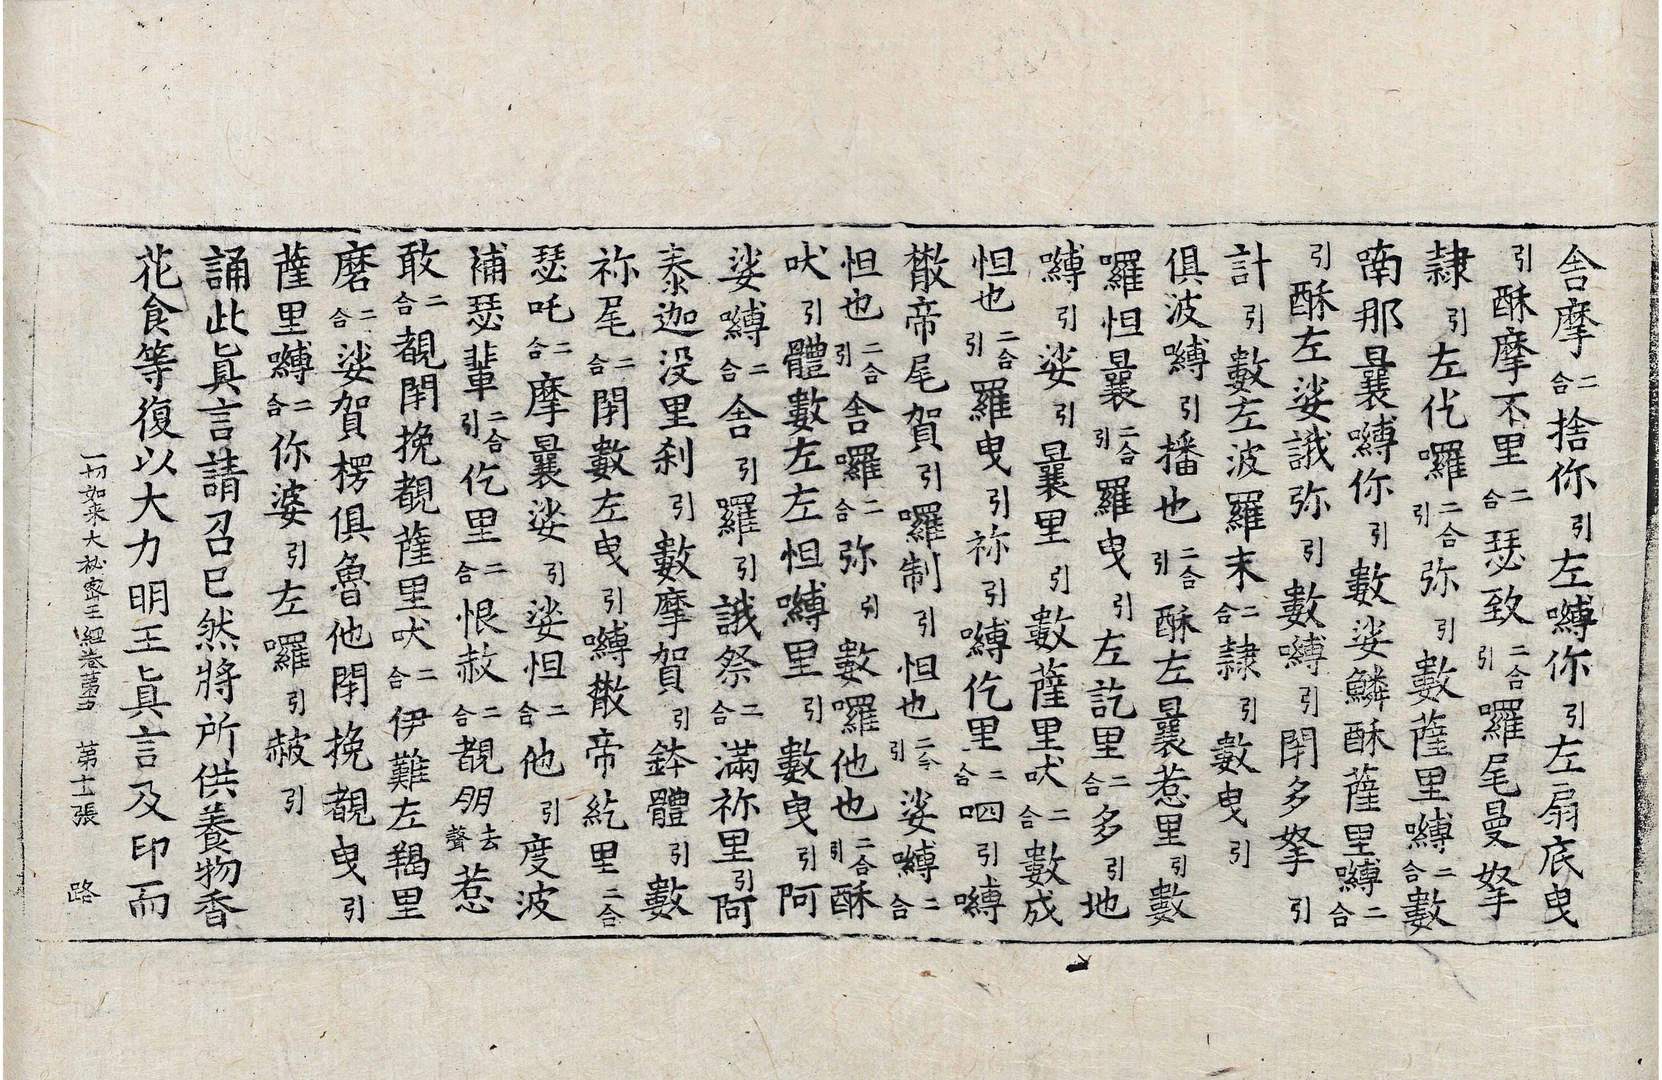 舎摩二合捨你引左嚩你引左扇底曳
引酥摩不里二合瑟致二合引囉尾曼拏
隷引左代囉二合引弥引數薩里嚩二合數
喃那曩嚩你引數娑鱗酥薩里嚩二合
引酥左娑誐弥引數嚩引閉多拏引
計引數左波羅末二合隷引數曳引
俱波嚩引播也二合引酥左曩惹里引數
囉怛曩二合引羅曳引左訖里二合多引地
嚩引娑引曩里引數薩里吠二合數成
怛也二合引羅曳引祢引嚩仡里二合呬引嚩
散帝尾賀引囉制引怛也二合引娑嚩二合
怛也二合引舎囉二合弥引數囉他也二合引酥
吠引體數左左怛嚩里引數曳引阿
娑嚩二合舎引羅引誐祭二合滿祢里引阿
㤗迦没里刹引數摩賀引鉢體引數
祢尾二合閉數左曳引嚩散帝紇里二合
瑟吒二合摩曩娑引娑怛二合他引度波
補瑟輩二合引仡里二合恨赦二合覩朋去聲惹
敢二合覩閉挽覩薩里吠二合伊難左羯里
磨二合娑賀楞俱魯他閉挽覩曳引
薩里嚩二合你婆引左囉引赧引
誦此眞言請召已然將所供養物香
花食等復以大力明王眞言及印而
一切如来大秘密王經卷第五　第十二張　路